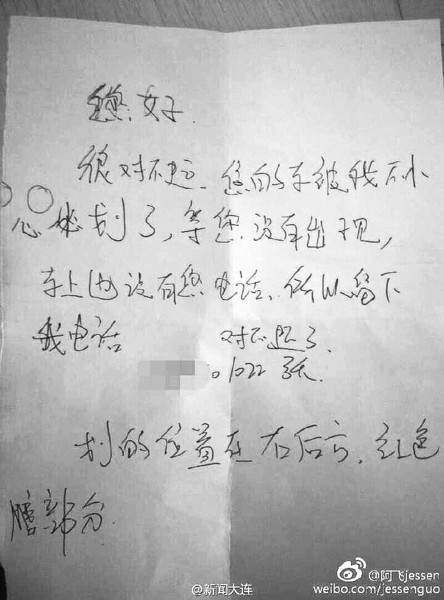 您好
很对不起、您的车被我不小
心 划了，等您没有出现，
车上也没有您电话、所以留下
我电话 对不起了.
1022 张
划的位置在右后方、红色
漆部分.
@新闻大连
@阿飞jessen
weibo.com/jessenguo